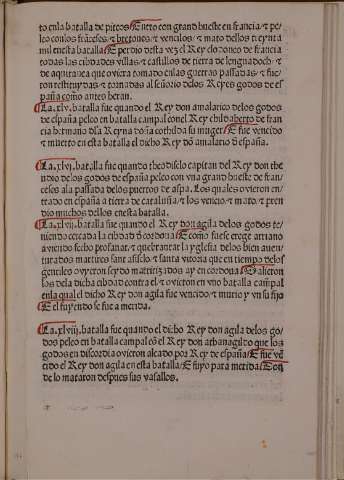 to en la batalla de piteos / Entro con grand hueste en francia / ⁊ pe/
leo con los frãceses ⁊ bretones / ⁊ vencio los / ⁊ mato dellos treynta
mil en esta batalla / E perdio desta vez el Rey clo ronco de francia
todas las cibdades villas ⁊ castillos de tierra de lenguadoch / ⁊
de aquitanea que oviera tomado en las guerras passadas / ⁊ fue/
ron restituydas / ⁊ tornadas al señorio delos Reyes godos de es
paña como antes heran.
La .xlv. batalla fue quando el Rey don amalarico delos godos
de españa peleo en batalla campal con el Rey childaberto de fran
cia hermano dsla Reyna doña cothilda su muger / E fue vencido
⁊ muerto en esta batalla el dicho Rey dõ amalarico đ españa.
La .xlvj. batalla fue quando theodisclo capitan del Rey don the
udio delos godos de españa peleo con vna grand hueste de fran/
ceses ala passada delos puertos de aspa. Los quales ovieron en/
trado en españa a tierra de cataluña / ⁊ los vencio ⁊ mato / ⁊ pren
dio muchos dellos en esta batalla.
La .xlvij. batalla fue quando el Rey don agila delos godos te/
niendo cercada la cibdad đ cordoua / E como fuese erege arriano
avicido seẽdo profanar / ⁊ quebrantar la yglesia delos bien auen
turados martires sant asisclo ⁊ santa vitoria que en tiempo delos
gentiles ovyeron seydo matirizados ay en cordoua / Salieron
los dela dicha cibdad contra el ⁊ ovieron en vno batalla campal
en la qual el dicho Rey don agila fue vencido / ⁊ murio y vn su fijo
E el fuyendo se fue a merida.
La .xlviij. batalla fue quando el dicho Rey don agila delos go/
dos peleo en batalla campal cõ el Rey don athanagildo que los
godos en discordia ovieron alcado por Rey de españa / E fue vẽ
cido el Rey don agila en esta batalla / E fuyo para merida / Don
de lo mataron despues sus vasallos.